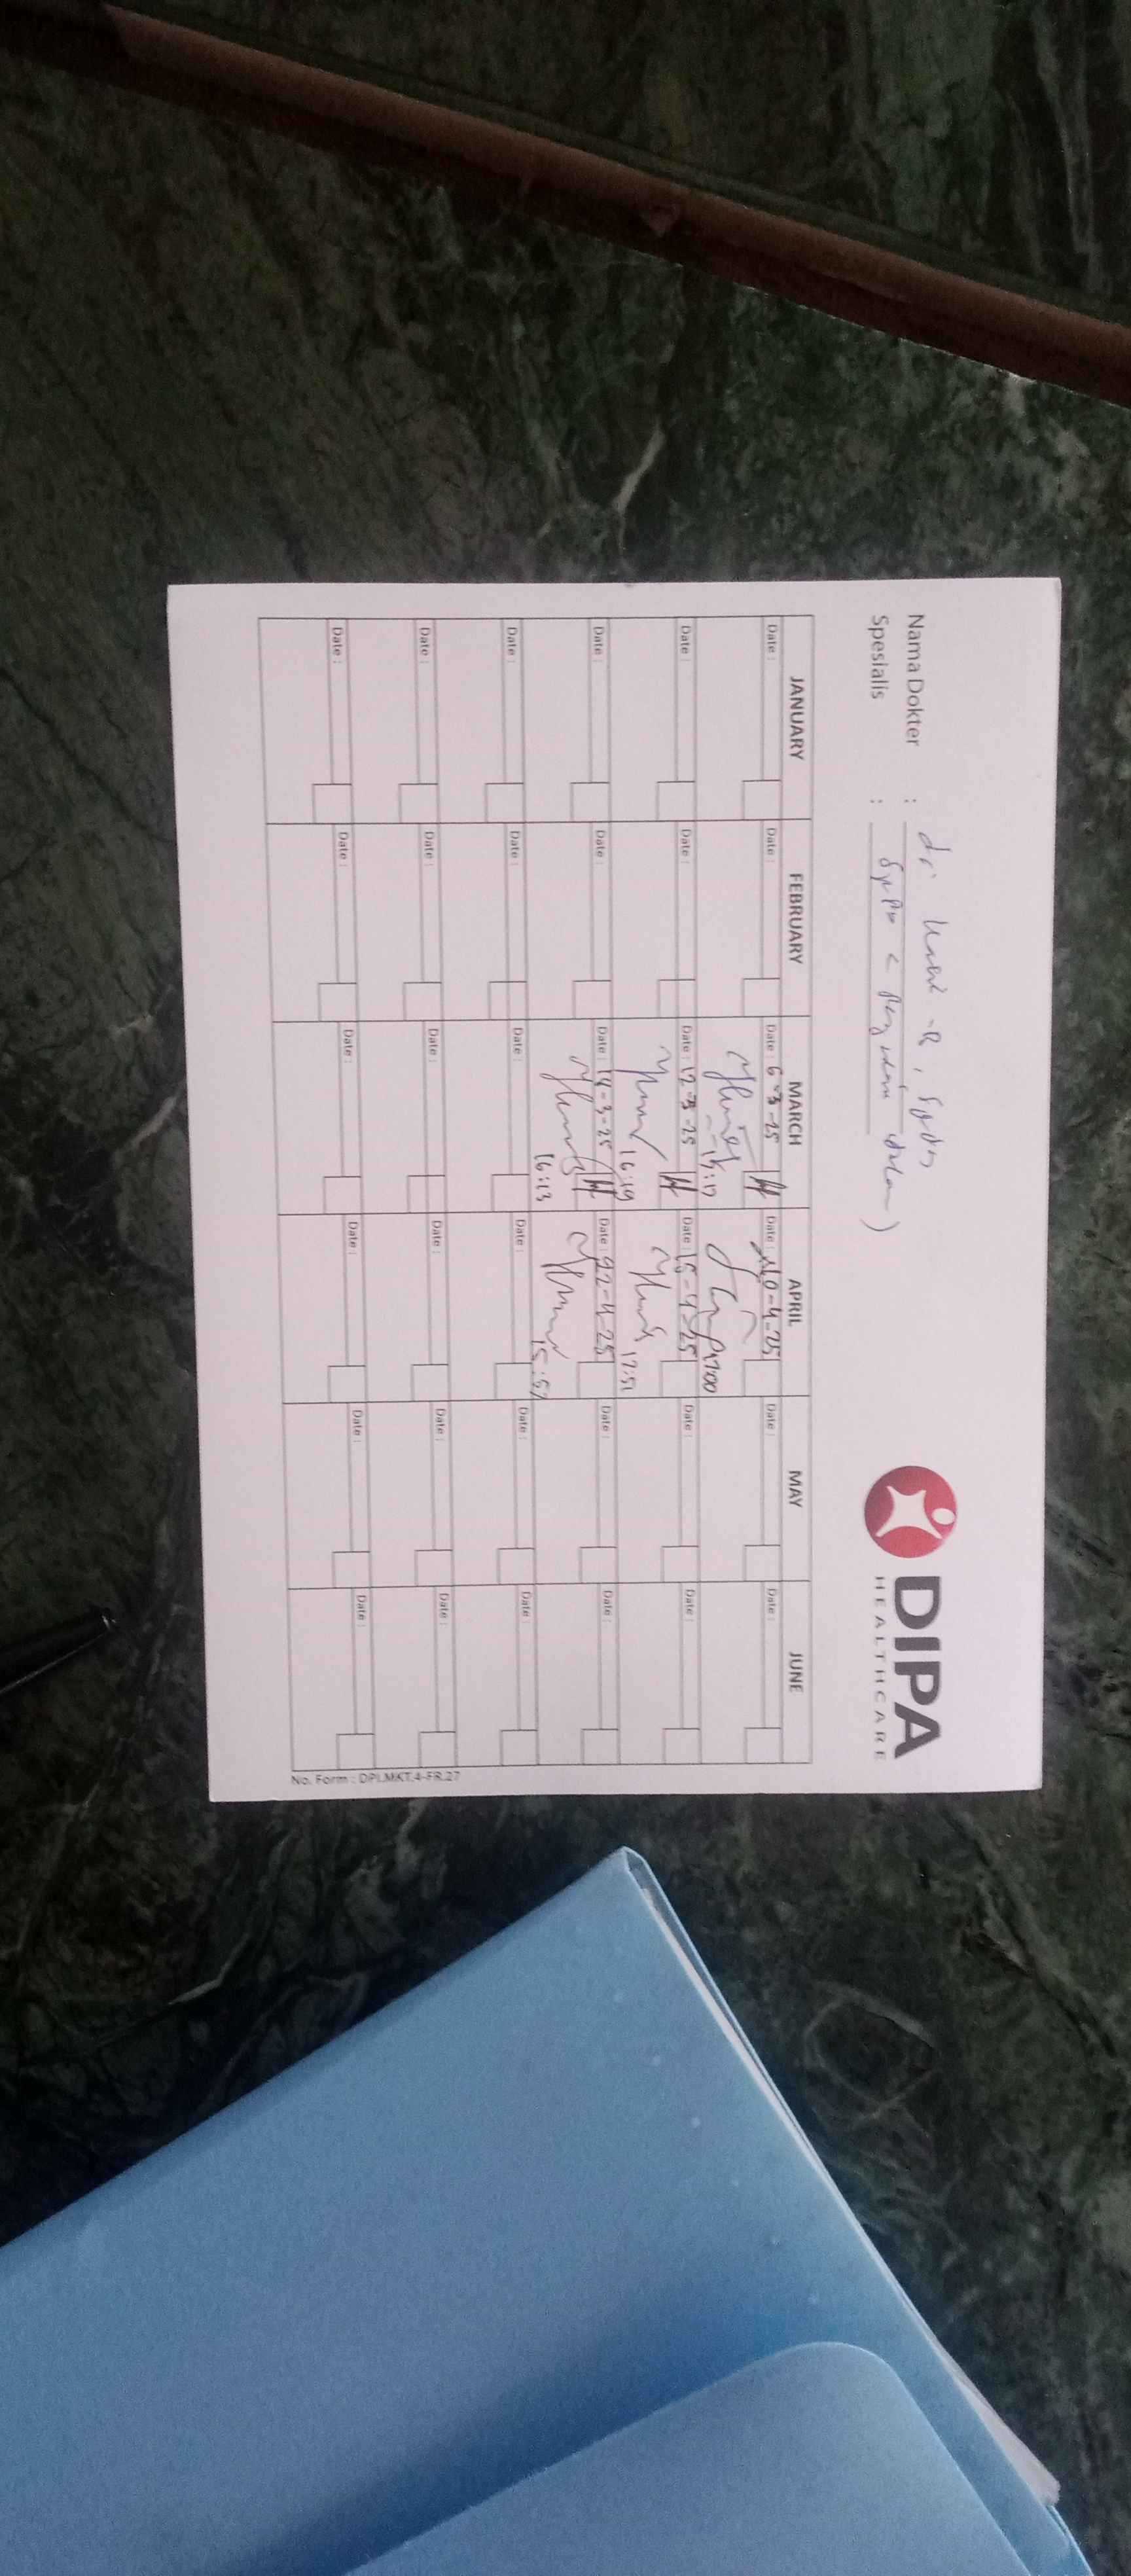 DIPA
HEALTHCARE
Nama Dokter :
Spesialis :
JANUARY FEBRUARY MARCH APRIL MAY JUNE
Date : Date : Date : 6-3-25 Date : 10-4-25 Date : Date :
17:00
Date : Date : Date : 12-3-25 Date : 15-4-25 Date : Date :
16:19 17:51
Date : Date : Date : 14-3-25 Date : 22-4-25 Date : Date :
16:13 15:57
Date : Date : Date : Date : Date : Date :
Date : Date : Date : Date : Date : Date :
Date : Date : Date : Date : Date : Date :
No. Form : DPI.MKT.4-FR.27